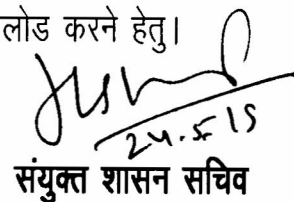 लोड करने हेतु।
24.5.15
संयुक्त शासन सचिव